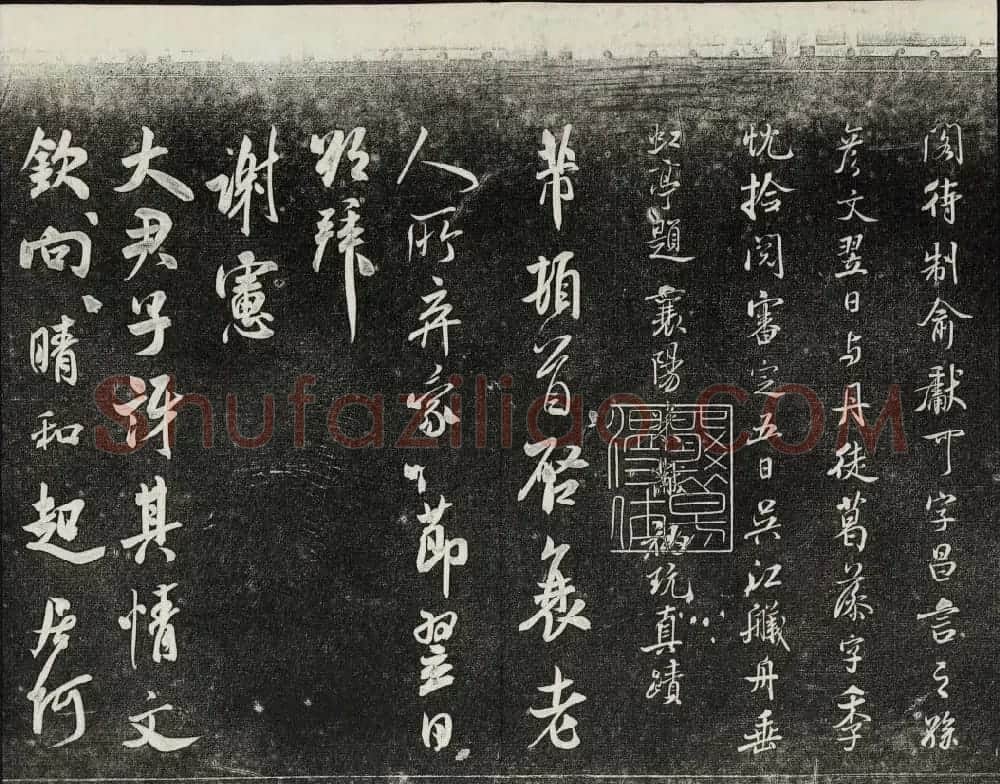 閣待制俞獻可字昌言之孫
彦文翌日与丹徒葛藻字季
忱拾閱審定五日吳江艤舟垂
虹亭題 襄陽米黻秘玩真蹟
芾頓首啓衰老
人所弃節翌日
拜
謝憲
大尹子訝其情文
欽向晴和起居何
Shufaziliao.COM